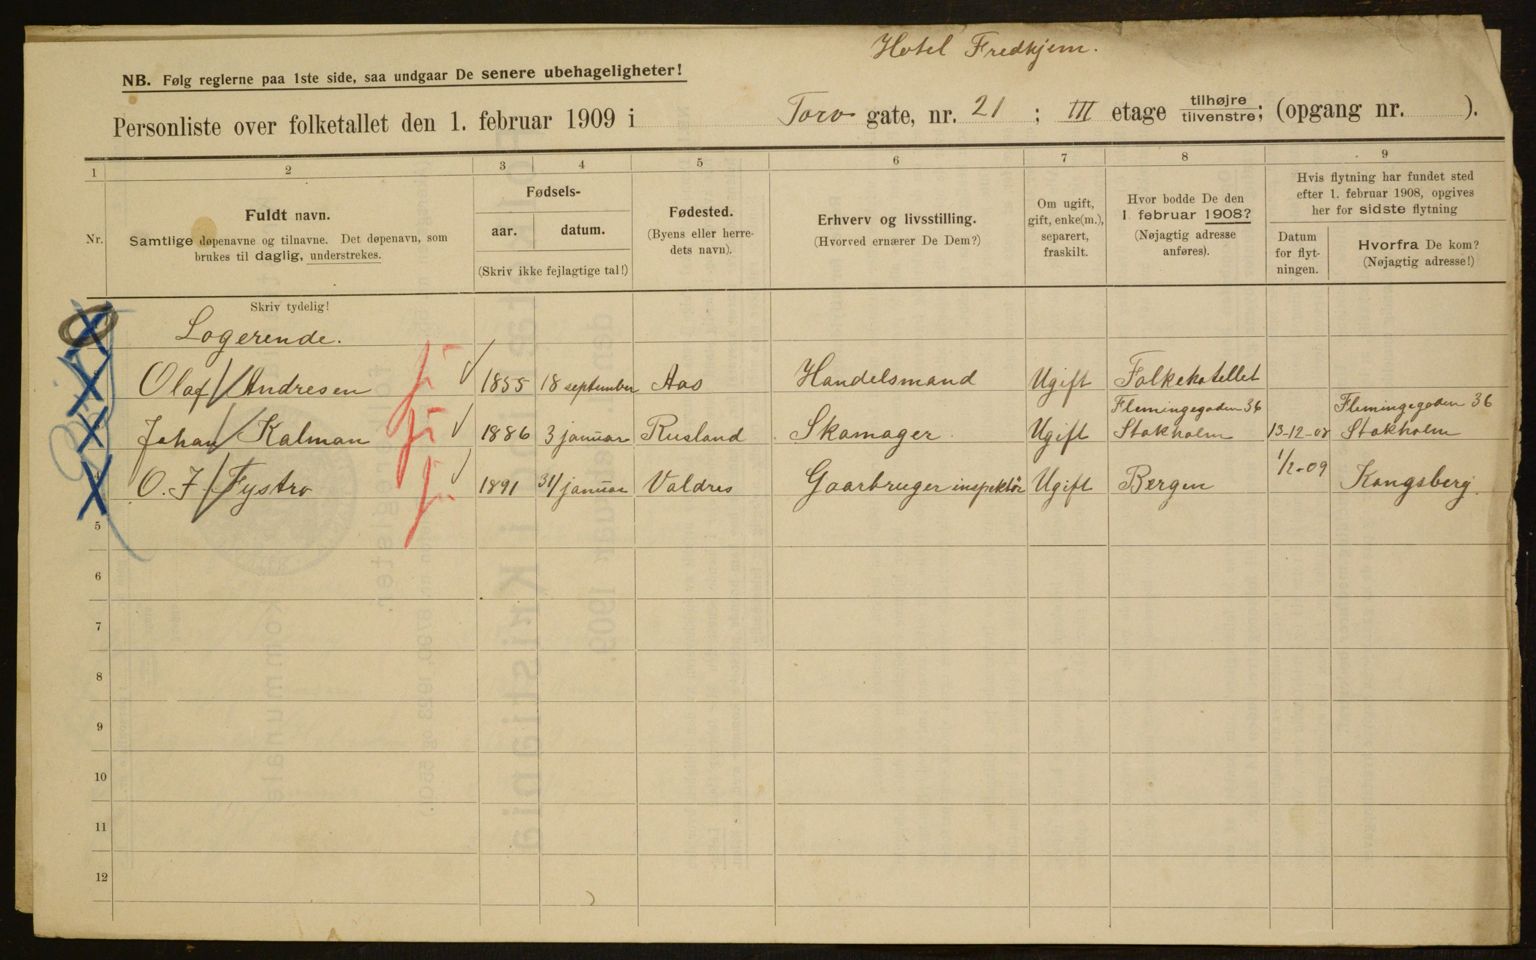 Hotel Fredkjem.
NB. Følg reglerne paa 1ste side, saa undgaar De senere ubehageligheter!
Personliste over folketallet den 1. februar 1909 i Torv gate, nr. 21 ; III etage tilhøjre tilvenstre; (opgang nr. ).
1 2 3 4 5 6 7 8 9
Nr.
Fuldt navn.
Samtlige døpenavne og tilnavne. Det døpenavn, som
brukes til daglig, understrekes.
Fødsels-
aar. datum.
(Skriv ikke fejlagtige tal!)
Fødested.
(Byens eller herre-
dets navn).
Erhverv og livsstilling.
(Hvorved ernærer De Dem?)
Om ugift,
gift, enke(m.),
separert,
fraskilt.
Hvor bodde De den
1. februar 1908?
(Nøjagtig adresse
anføres).
Hvis flytning har fundet sted
efter 1. februar 1908, opgives
her for sidste flytning
Datum
for flyt-
ningen.
Hvorfra De kom?
(Nøjagtig adresse!)
Skriv tydelig!
Logerende.
Olaf Andresen 1855 18 september Aas Handelsmand Ugift Folkehotellet
Flemingegaden 36 Flemingegaden 36
Johan Kalman 1886 3 januar Rusland Skomager. Ugift Stokholm 13-12-08 Stokholm
O. J Fystro 1891 31/ januar Valdres Gaarbruger inspektør Ugift Bergen 1/2-09 Kongsberg.
5
6
7
8
9
10
11
12